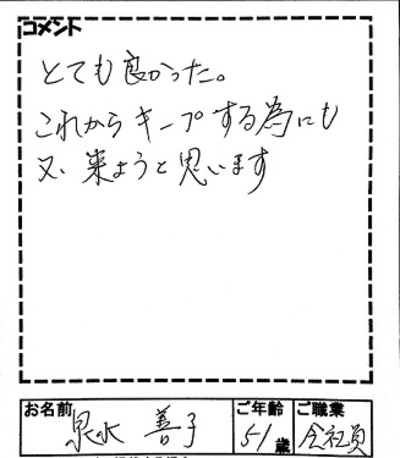 コメント
とても良かった。
これからキープする為にも
又、来ようと思います
お名前 泉水 善子 ご年齢 51歳 ご職業 会社員